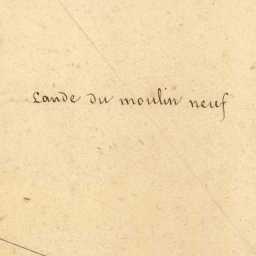 Lande du moulin neuf